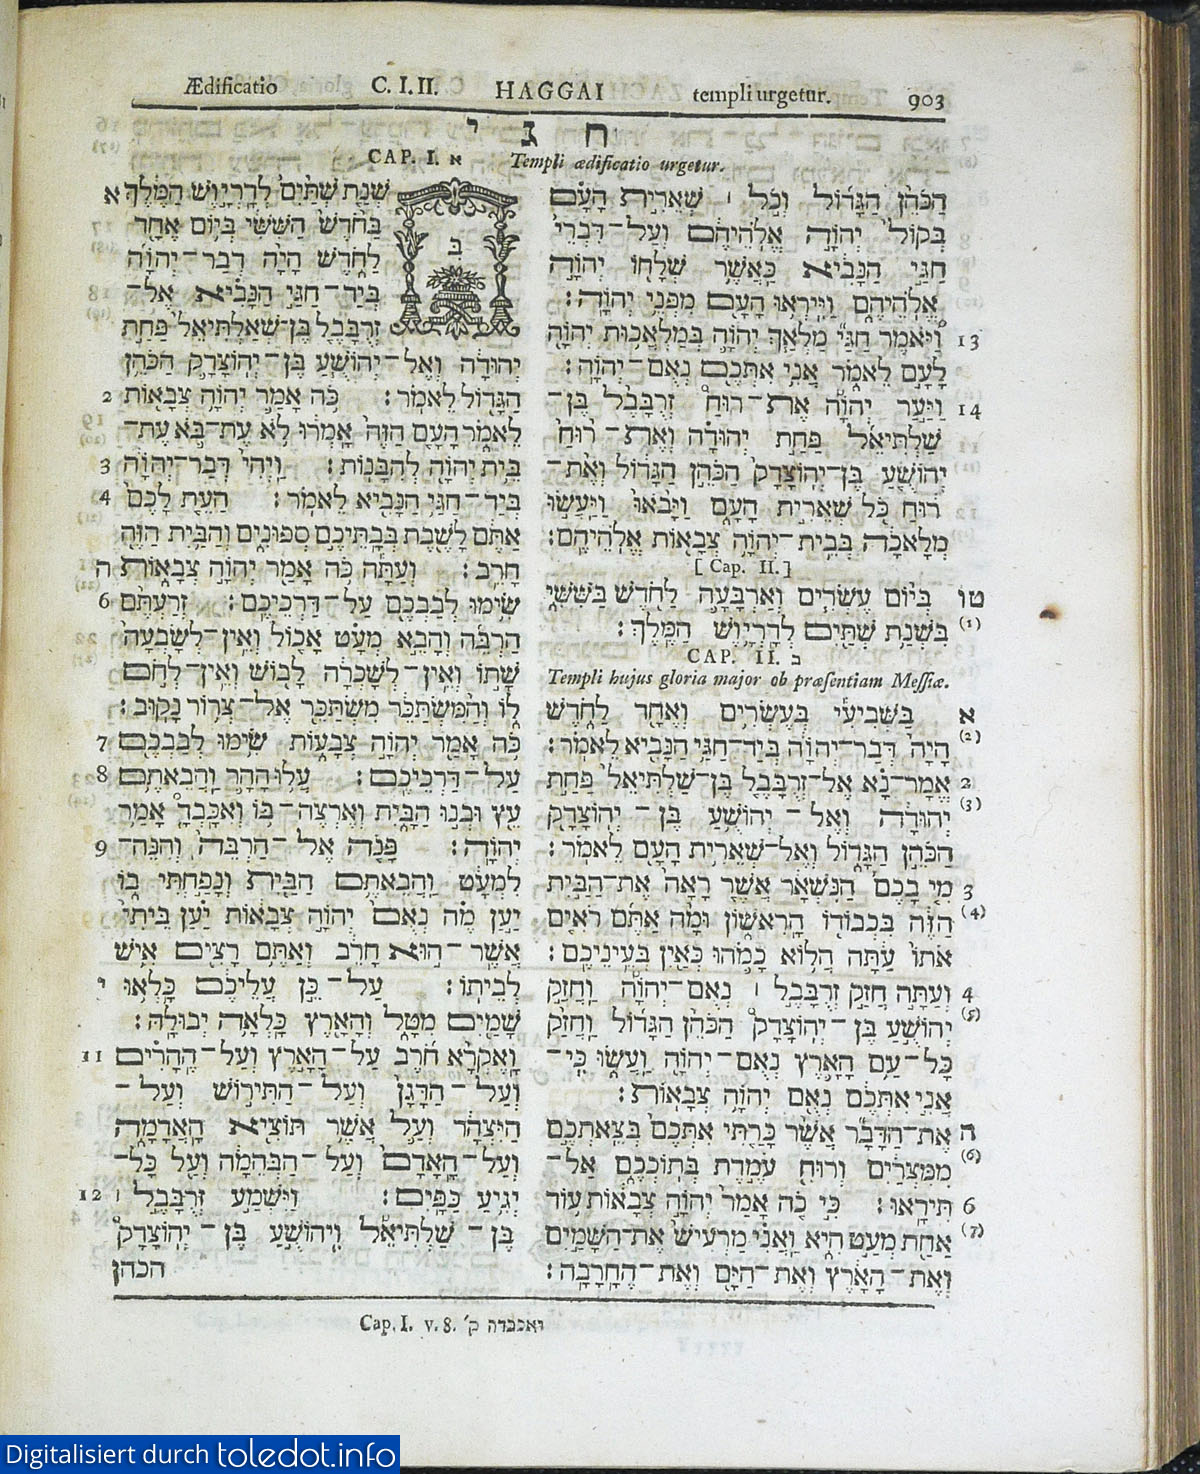 Ædificatio C. I. II. HAGGAI templi urgetur. 903
חגי
CAP. I. א Templi ædificatio urgetur.
א בִּשְׁנַת שְׁתַּיִם לְדָרְיָוֶשׁ הַמֶּלֶךְ
בַּחֹדֶשׁ הַשִּׁשִּׁי בְּיוֹם אֶחָד
לַחֹדֶשׁ הָיָה דְבַר־יְהוָֹה
בְּיַד־חַגַּי הַנָּבִיא אֶל־
זְרֻבָּבֶל בֶּן־שְׁאַלְתִּיאֵל פַּחַת
יְהוּדָה וְאֶל־יְהוֹשֻׁעַ בֶּן־יְהוֹצָדָק הַכֹּהֵן
2 הַגָּדוֹל לֵאמֹר׃ כֹּה אָמַר יְהוָֹה צְבָאוֹת
לֵאמֹר הָעָם הַזֶּה אָמְרוּ לֹא עֶת־בֹּא עֶת־
3 בֵּית יְהוָֹה לְהִבָּנוֹת׃ וַיְהִי דְּבַר־יְהוָֹה
4 בְּיַד־חַגַּי הַנָּבִיא לֵאמֹר׃ הַעֵת לָכֶם
אַתֶּם לָשֶׁבֶת בְּבָתֵּיכֶם סְפוּנִים וְהַבַּיִת הַזֶּה
ה חָרֵב׃ וְעַתָּה כֹּה אָמַר יְהוָֹה צְבָאוֹת
6 שִׂימוּ לְבַבְכֶם עַל־דַּרְכֵיכֶם׃ זְרַעְתֶּם
הַרְבֵּה וְהָבֵא מְעָט אָכוֹל וְאֵין־לְשָׂבְעָה
שָׁתוֹ וְאֵין־לְשָׁכְרָה לָבוֹשׁ וְאֵין־לְחֹם
לוֹ וְהַמִּשְׂתַּכֵּר מִשְׂתַּכֵּר אֶל־צְרוֹר נָקוּב׃
7 כֹּה אָמַר יְהוָֹה צְבָאוֹת שִׂימוּ לְבַבְכֶם
8 עַל־דַּרְכֵיכֶם׃ עֲלוּ הָהָר וַהֲבֵאתֶם
עֵץ וּבְנוּ הַבָּיִת וְאֶרְצֶה־בּוֹ וְאֶכָּבְדָ אָמַר
9 יְהוָֹה׃ פָּנֹה אֶל־הַרְבֵּה וְהִנֵּה־
לִמְעָט וַהֲבֵאתֶם הַבַּיִת וְנָפַחְתִּי בוֹ
יַעַן מֶה נְאֻם יְהוָֹה צְבָאוֹת יַעַן בֵּיתִי
אֲשֶׁר־הוּא חָרֵב וְאַתֶּם רָצִים אִישׁ
י לְבֵיתוֹ׃ עַל־כֵּן עֲלֵיכֶם כָּלְאוּ
שָׁמַיִם מִטָּל וְהָאָרֶץ כָּלְאָה יְבוּלָהּ׃
11 וָאֶקְרָא חֹרֶב עַל־הָאָרֶץ וְעַל־הֶהָרִים
וְעַל־הַדָּגָן וְעַל־הַתִּירוֹשׁ וְעַל־
הַיִּצְהָר וְעַל אֲשֶׁר תּוֹצִיא הָאֲדָמָה
וְעַל־הָאָדָם וְעַל־הַבְּהֵמָה וְעַל כָּל־
12 יְגִיעַ כַּפָּיִם׃ וַיִּשְׁמַע זְרֻבָּבֶל ׀
בֶּן־שַׁלְתִּיאֵל וִיהוֹשֻׁעַ בֶּן־יְהוֹצָדָק
הכהן
הַכֹּהֵן הַגָּדוֹל וְכֹל ׀ שְׁאֵרִית הָעָם
בְּקוֹל יְהוָֹה אֱלֹהֵיהֶם וְעַל־דִּבְרֵי
חַגַּי הַנָּבִיא כַּאֲשֶׁר שְׁלָחוֹ יְהוָֹה
אֱלֹהֵיהֶם וַיִּירְאוּ הָעָם מִפְּנֵי יְהוָֹה׃
13 וַיֹּאמֶר חַגַּי מַלְאַךְ יְהוָֹה בְּמַלְאֲכוּת יְהוָֹה
לָעָם לֵאמֹר אֲנִי אִתְּכֶם נְאֻם־יְהוָֹה׃
14 וַיָּעַר יְהוָֹה אֶת־רוּחַ זְרֻבָּבֶל בֶּן־
שַׁלְתִּיאֵל פַּחַת יְהוּדָה וְאֶת־רוּחַ
יְהוֹשֻׁעַ בֶּן־יְהוֹצָדָק הַכֹּהֵן הַגָּדוֹל וְאֶת־
רוּחַ כֹּל שְׁאֵרִית הָעָם וַיָּבֹאוּ וַיַּעֲשׂוּ
מְלָאכָה בְּבֵית־יְהוָֹה צְבָאוֹת אֱלֹהֵיהֶם׃
[ Cap. II. ]
טו (1) בְּיוֹם עֶשְׂרִים וְאַרְבָּעָה לַחֹדֶשׁ בַּשִּׁשִּׁי
בִּשְׁנַת שְׁתַּיִם לְדָרְיָוֶשׁ הַמֶּלֶךְ׃
CAP. II. ב
Templi hujus gloria major ob præsentiam Messiæ.
א (2) בַּשְּׁבִיעִי בְּעֶשְׂרִים וְאֶחָד לַחֹדֶשׁ
הָיָה דְּבַר־יְהוָֹה בְּיַד־חַגַּי הַנָּבִיא לֵאמֹר׃
2 (3) אֱמָר־נָא אֶל־זְרֻבָּבֶל בֶּן־שַׁלְתִּיאֵל פַּחַת
יְהוּדָה וְאֶל־יְהוֹשֻׁעַ בֶּן־יְהוֹצָדָק
הַכֹּהֵן הַגָּדוֹל וְאֶל־שְׁאֵרִית הָעָם לֵאמֹר׃
3 (4) מִי בָכֶם הַנִּשְׁאָר אֲשֶׁר רָאָה אֶת־הַבַּיִת
הַזֶּה בִּכְבוֹדוֹ הָרִאשׁוֹן וּמָה אַתֶּם רֹאִים
אֹתוֹ עַתָּה הֲלוֹא כָמֹהוּ כְּאַיִן בְּעֵינֵיכֶם׃
4 (5) וְעַתָּה חֲזַק זְרֻבָּבֶל ׀ נְאֻם־יְהוָֹה וַחֲזַק
יְהוֹשֻׁעַ בֶּן־יְהוֹצָדָק הַכֹּהֵן הַגָּדוֹל וַחֲזַק
כָּל־עַם הָאָרֶץ נְאֻם־יְהוָֹה וַעֲשׂוּ כִּי־
אֲנִי אִתְּכֶם נְאֻם יְהוָֹה צְבָאוֹת׃
ה (6) אֶת־הַדָּבָר אֲשֶׁר כָּרַתִּי אִתְּכֶם בְּצֵאתְכֶם
מִמִּצְרַיִם וְרוּחִי עֹמֶדֶת בְּתוֹכְכֶם אַל־
6 (7) תִּירָאוּ׃ כִּי כֹה אָמַר יְהוָֹה צְבָאוֹת עוֹד
אַחַת מְעַט הִיא וַאֲנִי מַרְעִישׁ אֶת־הַשָּׁמַיִם
וְאֶת־הָאָרֶץ וְאֶת־הַיָּם וְאֶת־הֶחָרָבָה׃
Cap. I. v. 8. ואכבדה ק׳
Digitalisiert durch toledot.info